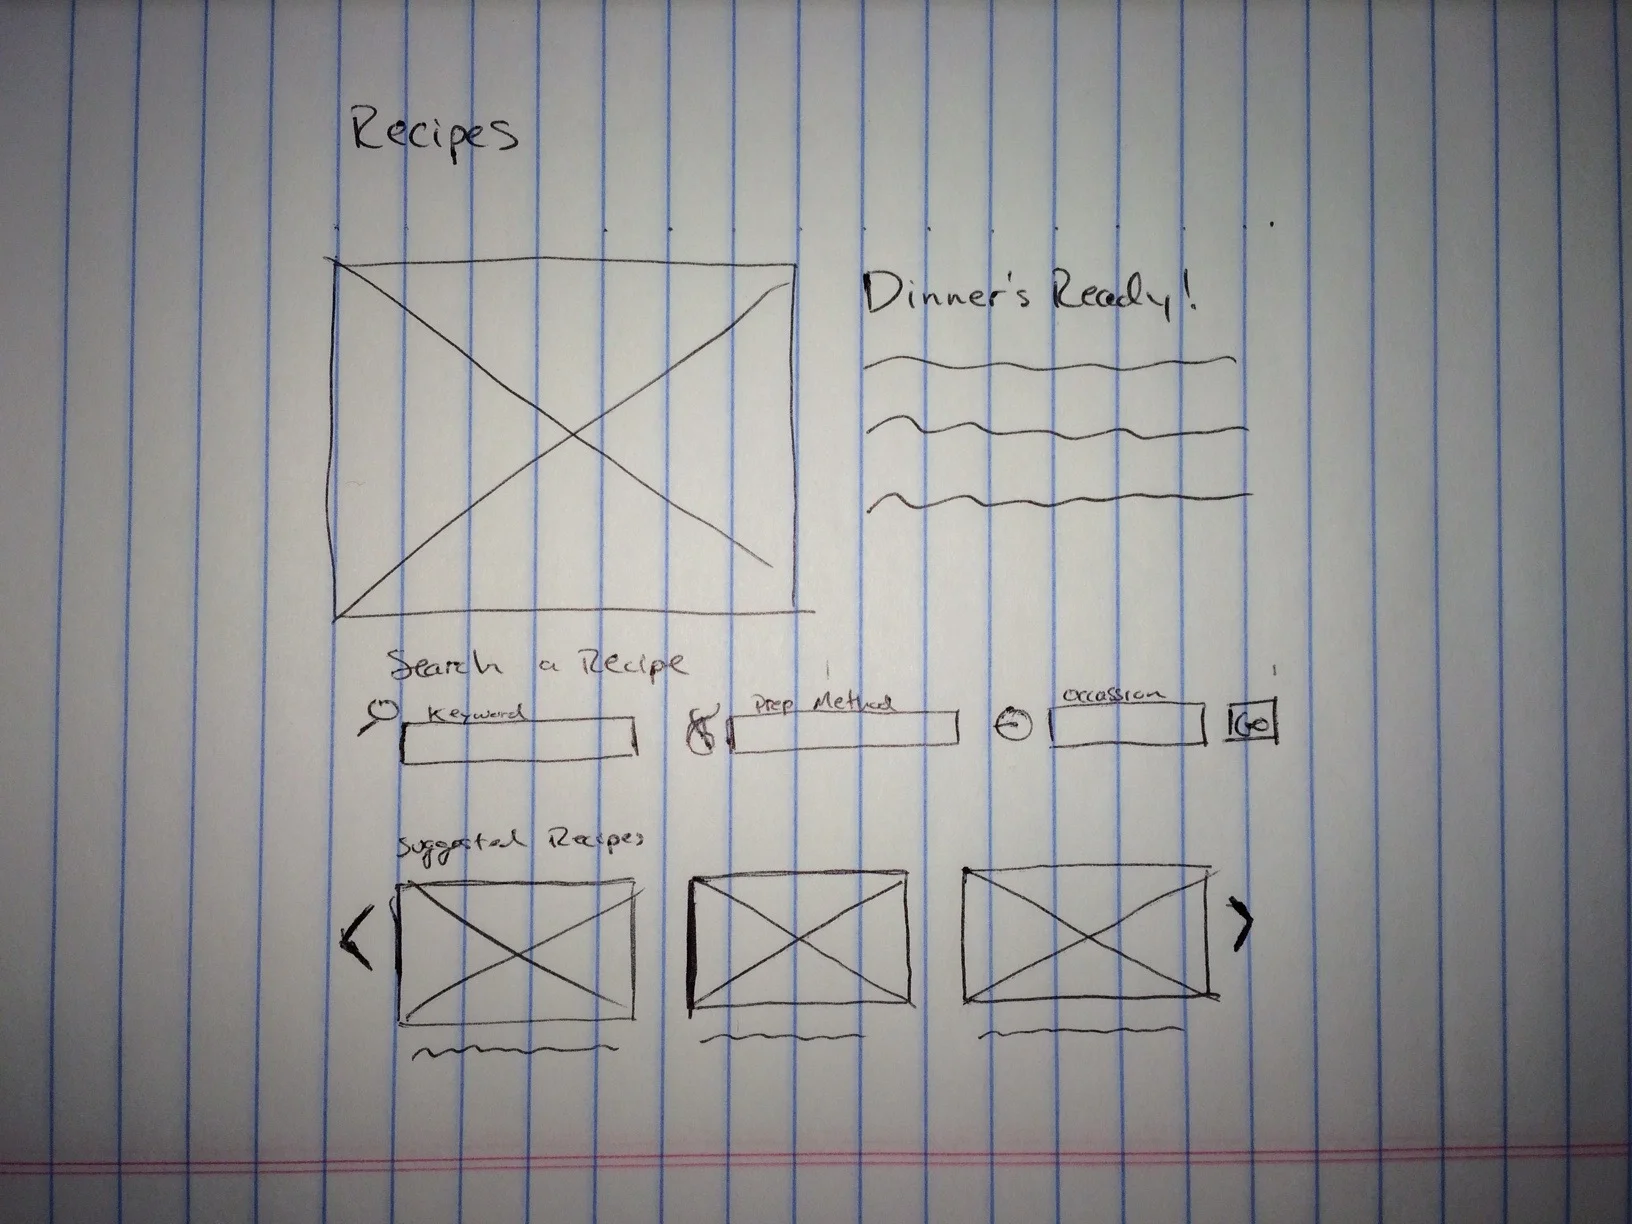 Recipes
Dinner's Ready!
Search a Recipe
Keyword
Prep Method
occassion
Go
Suggested Recipes